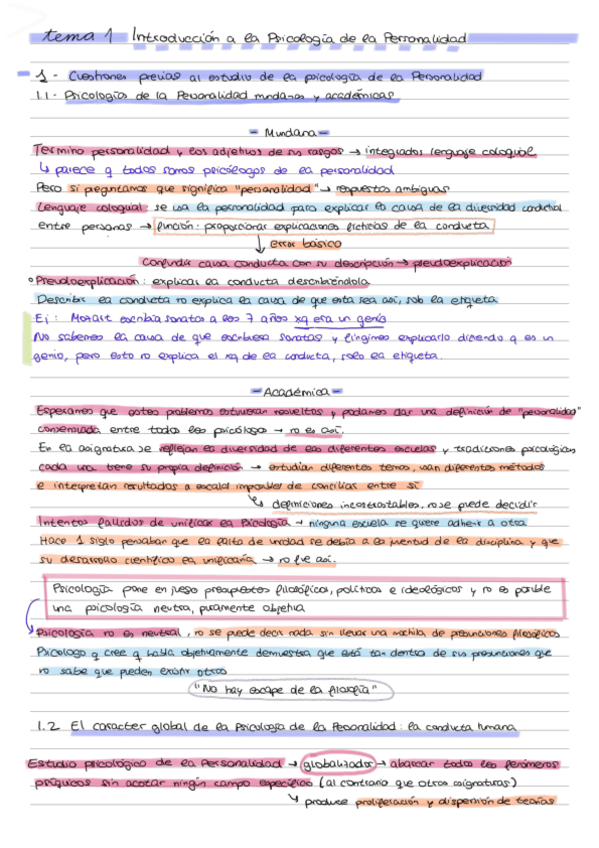 tema 1 Introducción a la Psicología de la Personalidad
1- Cuestiones previas al estudio de la psicología de la Personalidad
1.1- Psicología de la Personalidad mundanas y académicas
- Mundana -
Termino personalidad y los adjetivos de sus rasgos → integrados lenguaje coloquial
↳ parece q todos somos psicólogos de la personalidad
Pero si preguntamos que significa "personalidad" → respuestas ambiguas
Lenguaje coloquial: se usa la personalidad para explicar la causa de la diversidad conductual
entre personas → función: proporcionar explicaciones ficticias de la conducta
↓ error básico
Confundir causa conducta con su descripción → pseudoexplicación
Pseudoexplicación: explicar la conducta describiéndola
Describir la conducta no explica la causa de que esta sea así, solo la etiqueta
Ej: Mozart escribía sonatas a los 7 años xq era un genio
No sabemos la causa de que escribiese sonatas y fingimos explicarlo diciendo q es un
genio, pero esto no explica el xq de la conducta, solo la etiqueta.
- Académica -
Esperamos que estos problemas estuvieran resueltos y podamos dar una definición de "personalidad"
consensuada entre todos los psicólogos → no es así.
En la asignatura se reflejan la diversidad de las diferentes escuelas y tradiciones psicológicas
cada una tiene su propia definición → estudian diferentes temas, usan diferentes métodos
e interpretan resultados a escala imposibles de conciliar entre sí
↳ definiciones incontrastables, no se puede decidir
Intentos fallidos de unificar la Psicología → ninguna escuela se quiere adherir a otra
Hace 1 siglo pensaban que la falta de unidad se debía a la juventud de la disciplina y que
su desarrollo científico la unificaría → no fue así.
Psicología pone en juego presupuestos filosóficos, políticos e ideológicos y no es posible
una psicología neutra, puramente objetiva
Psicología no es neutral, no se puede decir nada sin llevar una mochila de presunciones filosóficas
Psicologo q cree q habla objetivamente demuestra que está tan dentro de sus presunciones que
no sabe que pueden existir otros
"No hay escape de la filosofía"
1.2 El caracter global de la Psicología de la Personalidad: la conducta humana
Estudio psicológico de la Personalidad → globalizador → abarcar todos los fenómeros
psíquicos sin acotar ningún campo específico (al contrario que otras asignaturas)
↳ produce proliferación y dispersión de teorías